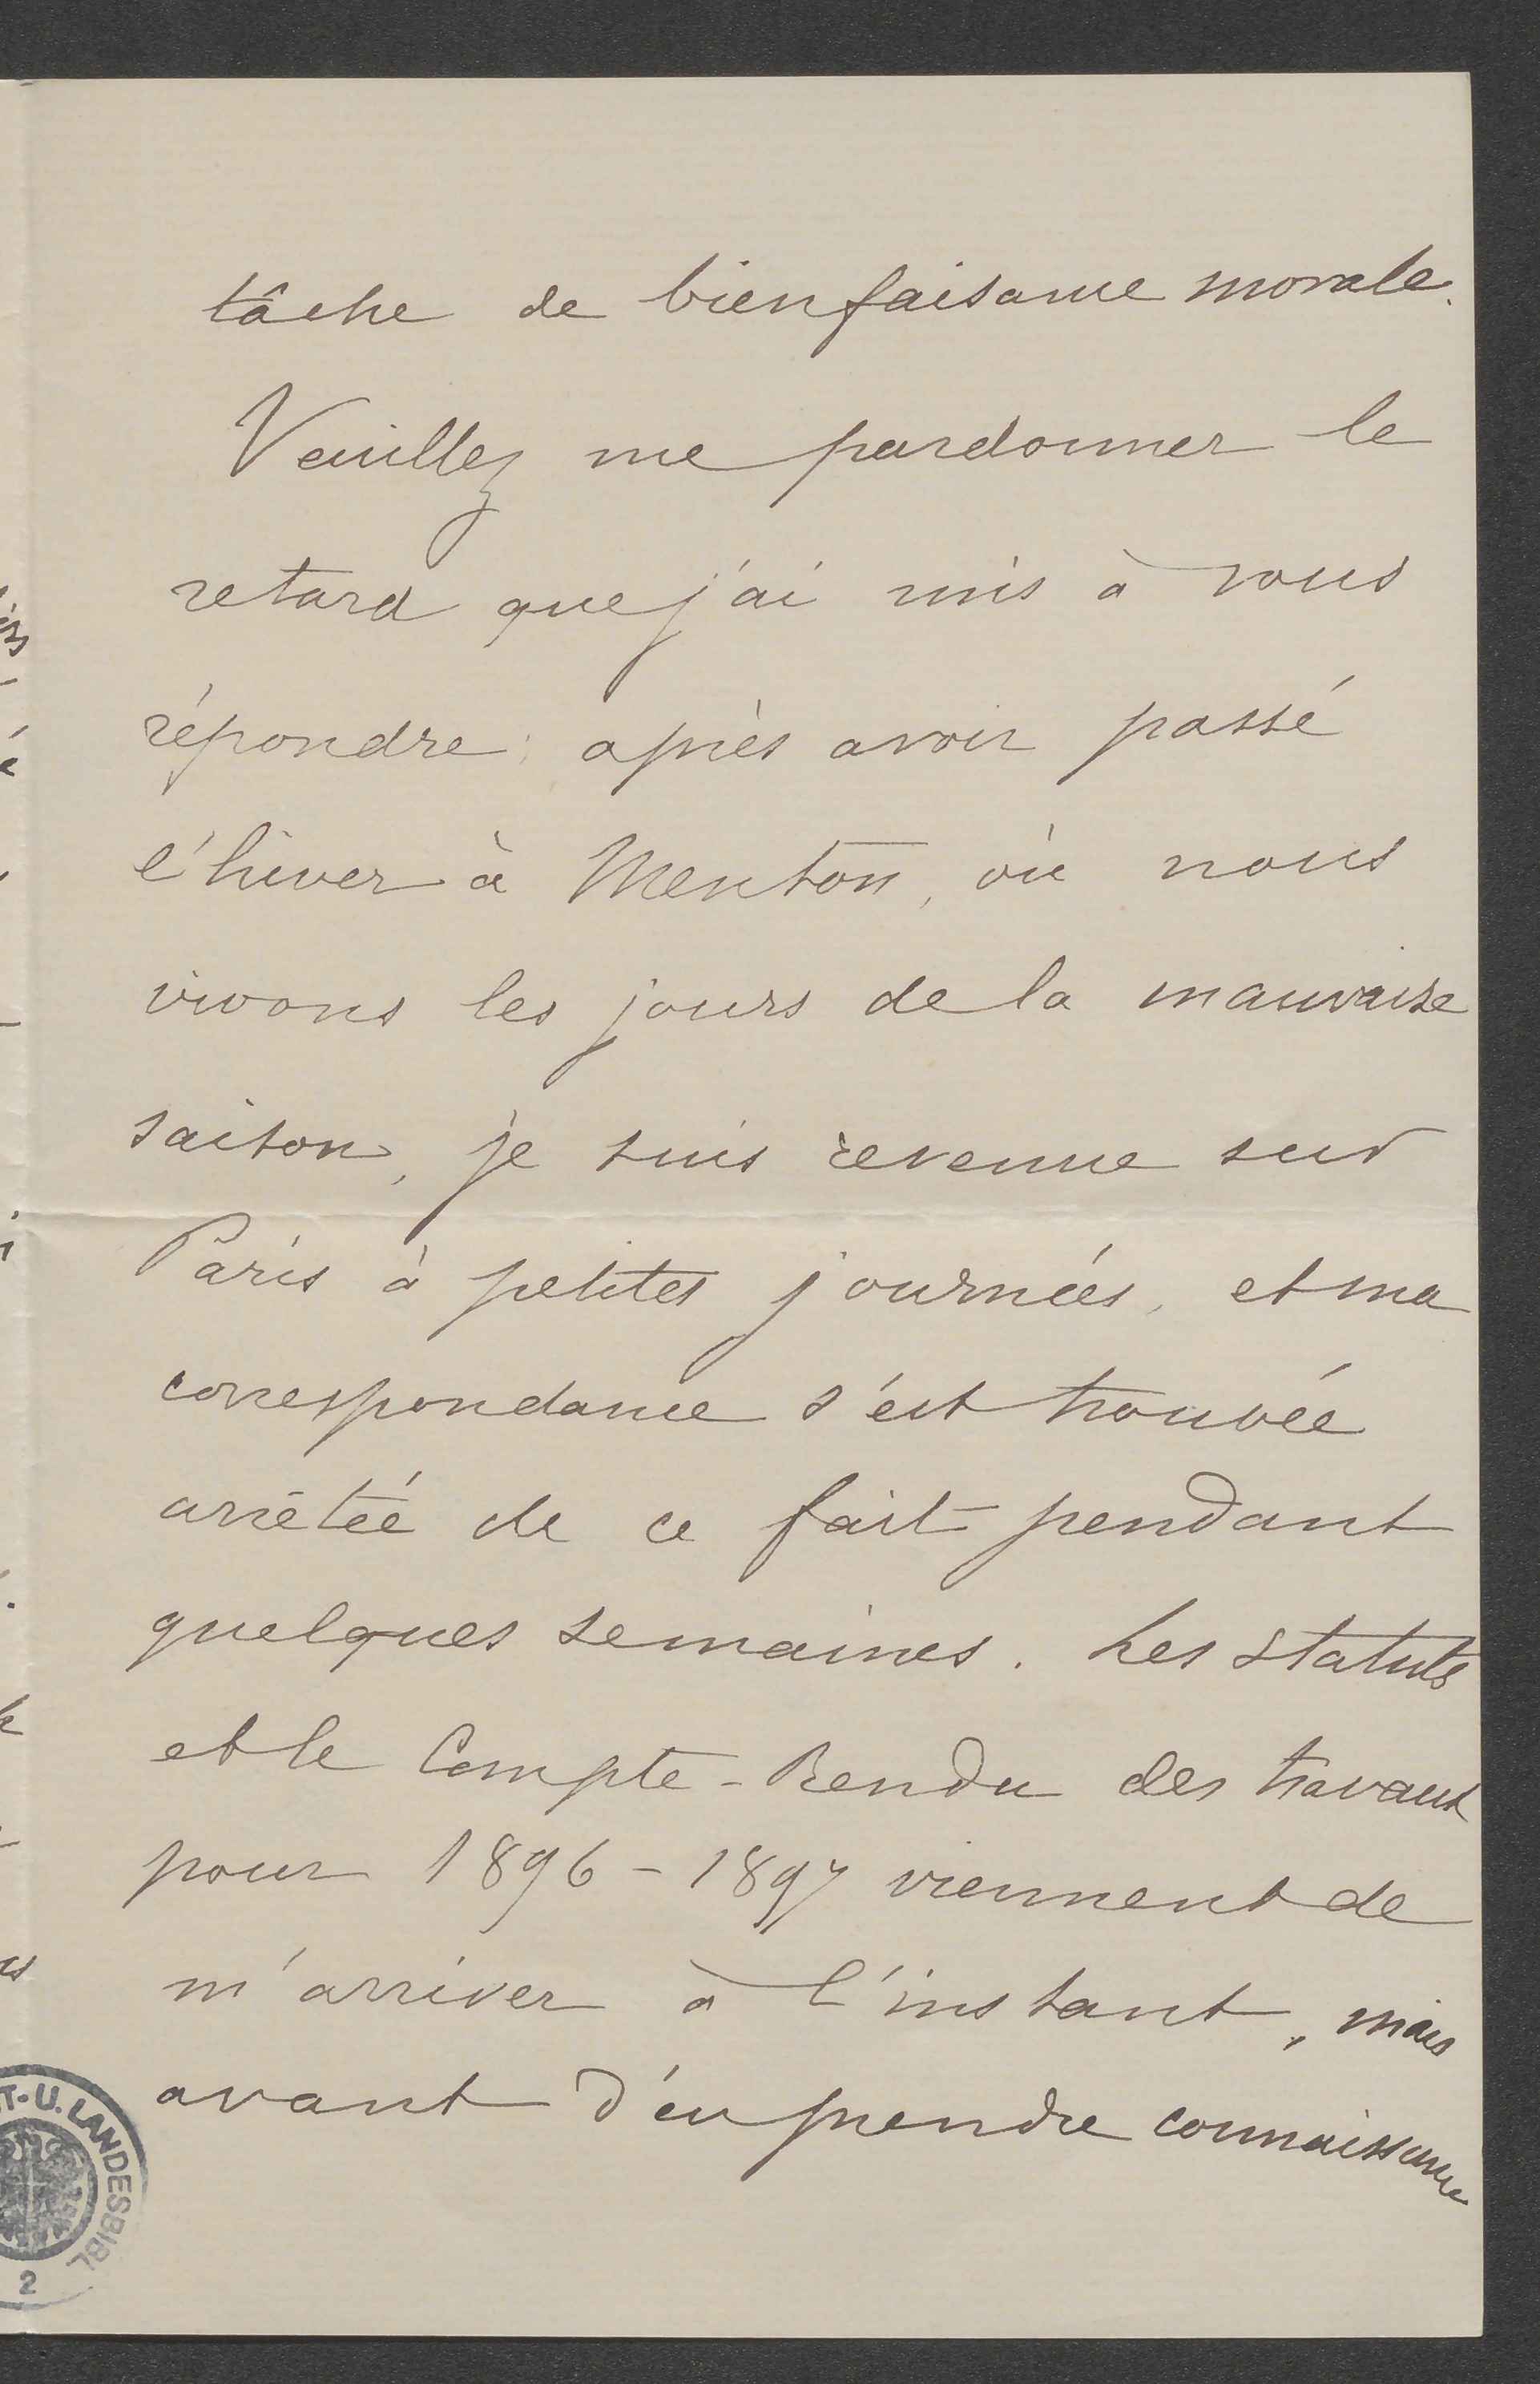 tâche de bienfaisance morale.
Veuillez me pardonner le
retard que j'ai mis à vous
répondre ; après avoir passé
l'hiver à Menton, où nous
vivons les jours de la mauvaise
saison, je suis revenue sur
Paris à petites journées, et ma
correspondance s'est trouvée
arrêtée de ce fait pendant
quelques semaines. Les Statuts
et le Compte-Rendu des travaux
pour 1896-1897 viennent de
m'arriver à l'instant, mais
avant d'en prendre connaissance
T-U. LANDESBIBL
2